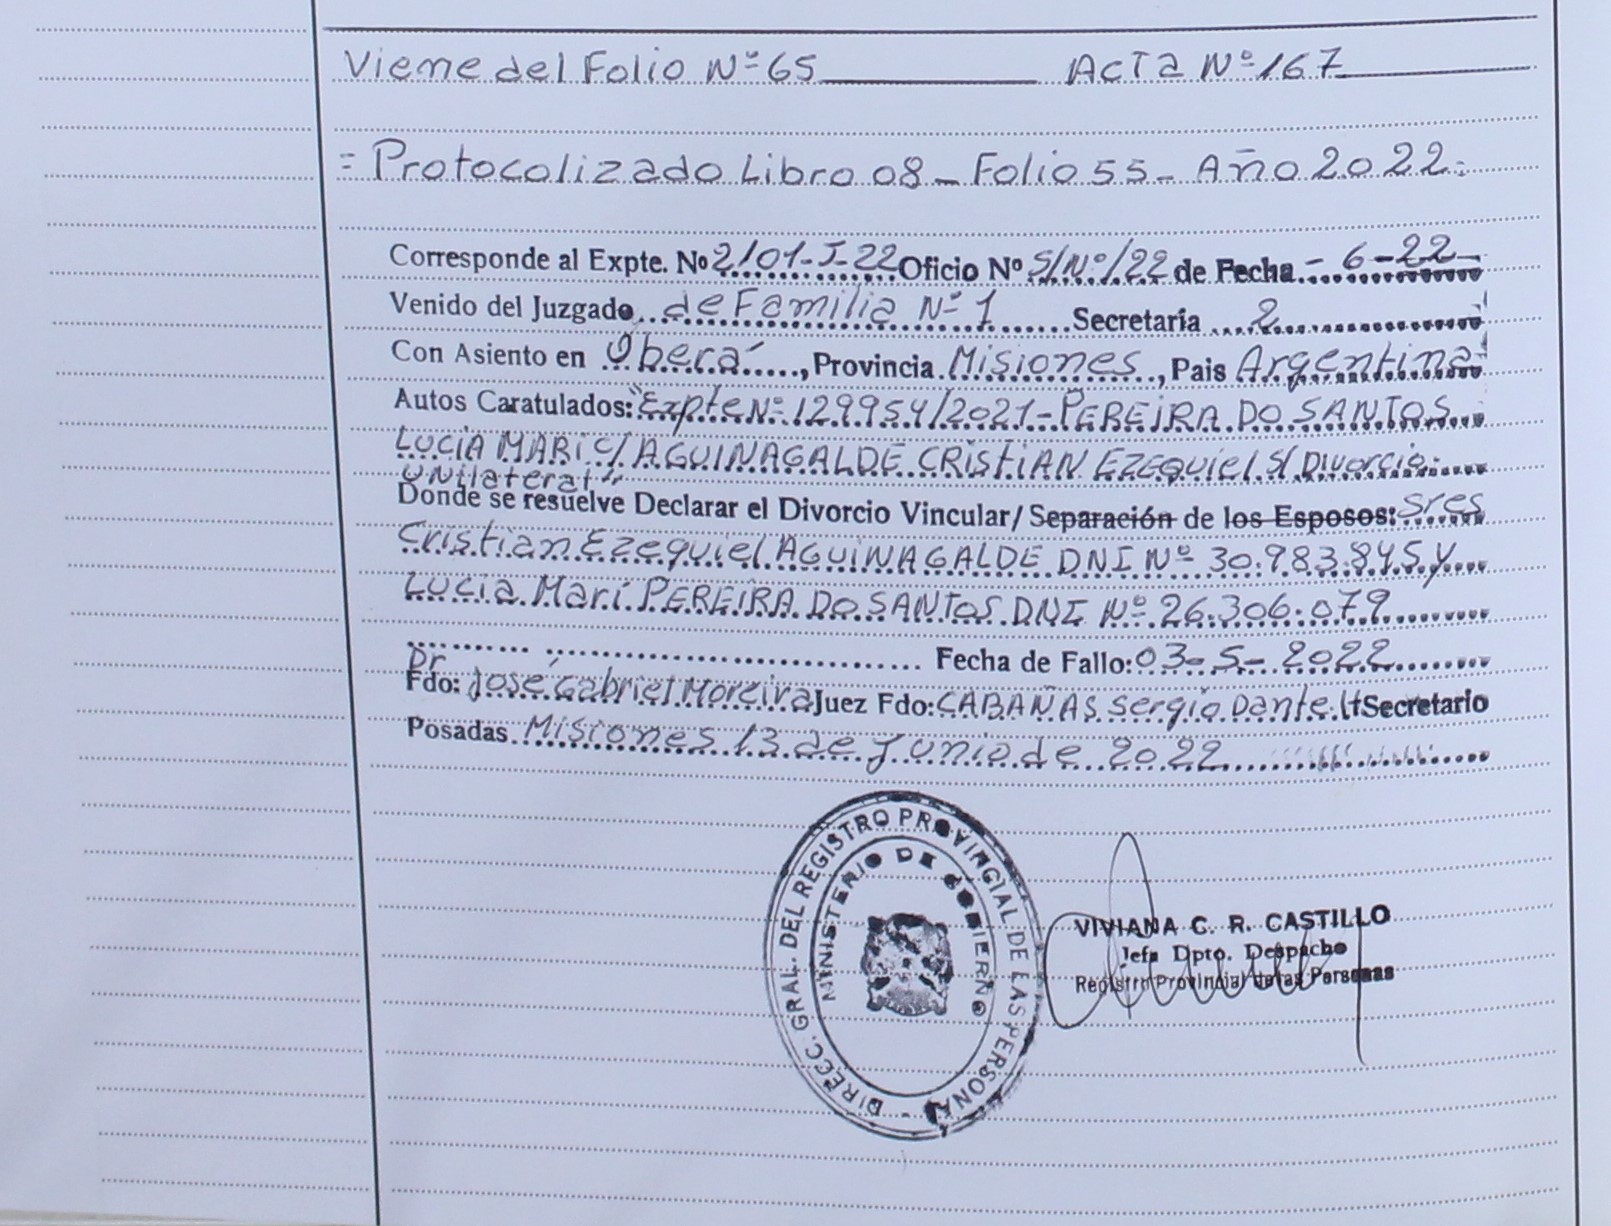 Viene del Folio Nº 65 Acta Nº 167
= Protocolizado Libro 08 - Folio 55 - Año 2022 =
Corresponde al Expte. Nº 2101-J-22 Oficio Nº S/Nº/22 de Fecha - 6-22-
Venido del Juzgado de Familia Nº 1 Secretaría 2
Con Asiento en Oberá, Provincia Misiones, Pais Argentina
Autos Caratulados: "Expte Nº 129954/2021-PEREIRA DO SANTOS
LUCIA MARI C/ AGUINAGALDE CRISTIAN EZEQUIEL S/ Divorcio
Unilateral"
Donde se resuelve Declarar el Divorcio Vincular/ Separación de los Esposos: sres
Cristian Ezequiel AGUINAGALDE DNI Nº 30.983.845 y
Lucia Mari PEREIRA DO SANTOS DNI Nº 26.306.079
Fecha de Fallo: 03-5-2022
Dr
Fdo: José Gabriel Moreira Juez Fdo: CABAÑAS Sergio Dante Secretario
Posadas Misiones 13 de Junio de 2022
DIRECC. GRAL. DEL REGISTRO PROVINCIAL DE LAS PERSONAS
MINISTERIO DE GOBIERNO
VIVIANA C. R. CASTILLO
Jefa Dpto. Despacho
Registro Provincial de las Personas